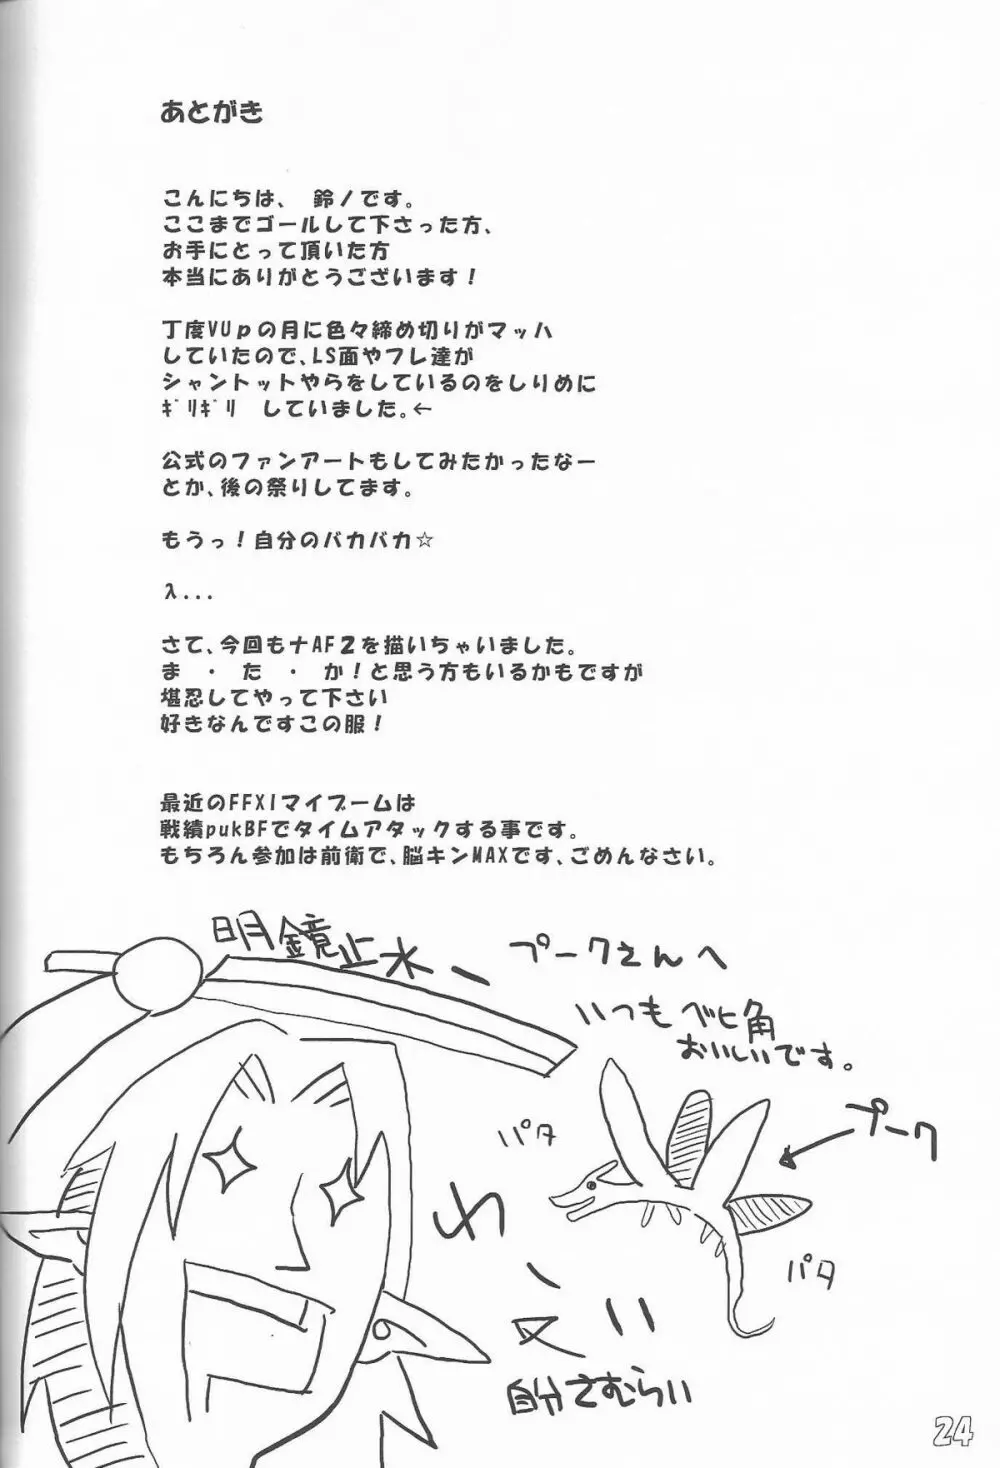 あとがき
こんにちは、 鈴ノです。
ここまでゴールして下さった方、
お手にとって頂いた方
本当にありがとうございます！
丁度VUpの月に色々締め切りがマッハ
していたので、LS面やフレ達が
シャントットやらをしているのをしりめに
ｷﾞﾘｷﾞﾘ していました。←
公式のファンアートもしてみたかったなー
とか、後の祭りしてます。
もうっ！自分のバカバカ☆
λ...
さて、今回もナAF2を描いちゃいました。
ま ・ た ・ か！と思う方もいるかもですが
堪忍してやって下さい
好きなんですこの服！
最近のFFXIマイブームは
戦績pukBFでタイムアタックする事です。
もちろん参加は前衛で、脳キンMAXです、ごめんなさい。
明鏡止水ー
プークさんへ
いつもベヒ角
おいしいです。
プーク
パタ
パタ
自分さむらい
24